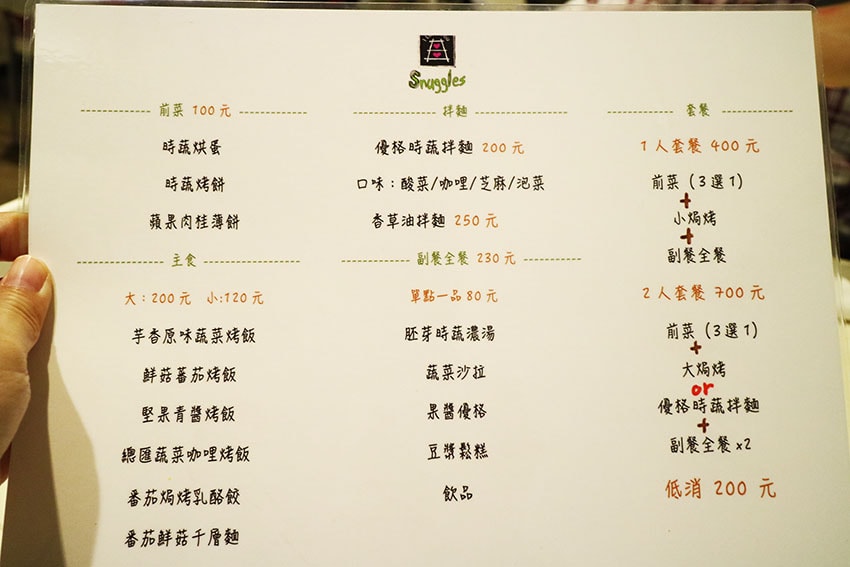 Snuggles
前菜 100元
時蔬烘蛋
時蔬烤餅
蘋果肉桂薄餅
主食
大：200元 小:120元
芋香原味蔬菜烤飯
鮮菇蕃茄烤飯
堅果青醬烤飯
總匯蔬菜咖哩烤飯
番茄焗烤乳酪餃
番茄鮮菇千層麵
拌麵
優格時蔬拌麵 200元
口味：酸菜/咖哩/芝麻/泡菜
香草油拌麵 250元
副餐全餐 230元
單點一品80元
胚芽時蔬濃湯
蔬菜沙拉
果醬優格
豆漿鬆糕
飲品
套餐
1人套餐 400元
前菜（3選1）
+
小焗烤
+
副餐全餐
2人套餐 700元
前菜（3選1）
+
大焗烤
or
優格時蔬拌麵
+
副餐全餐x2
低消 200 元